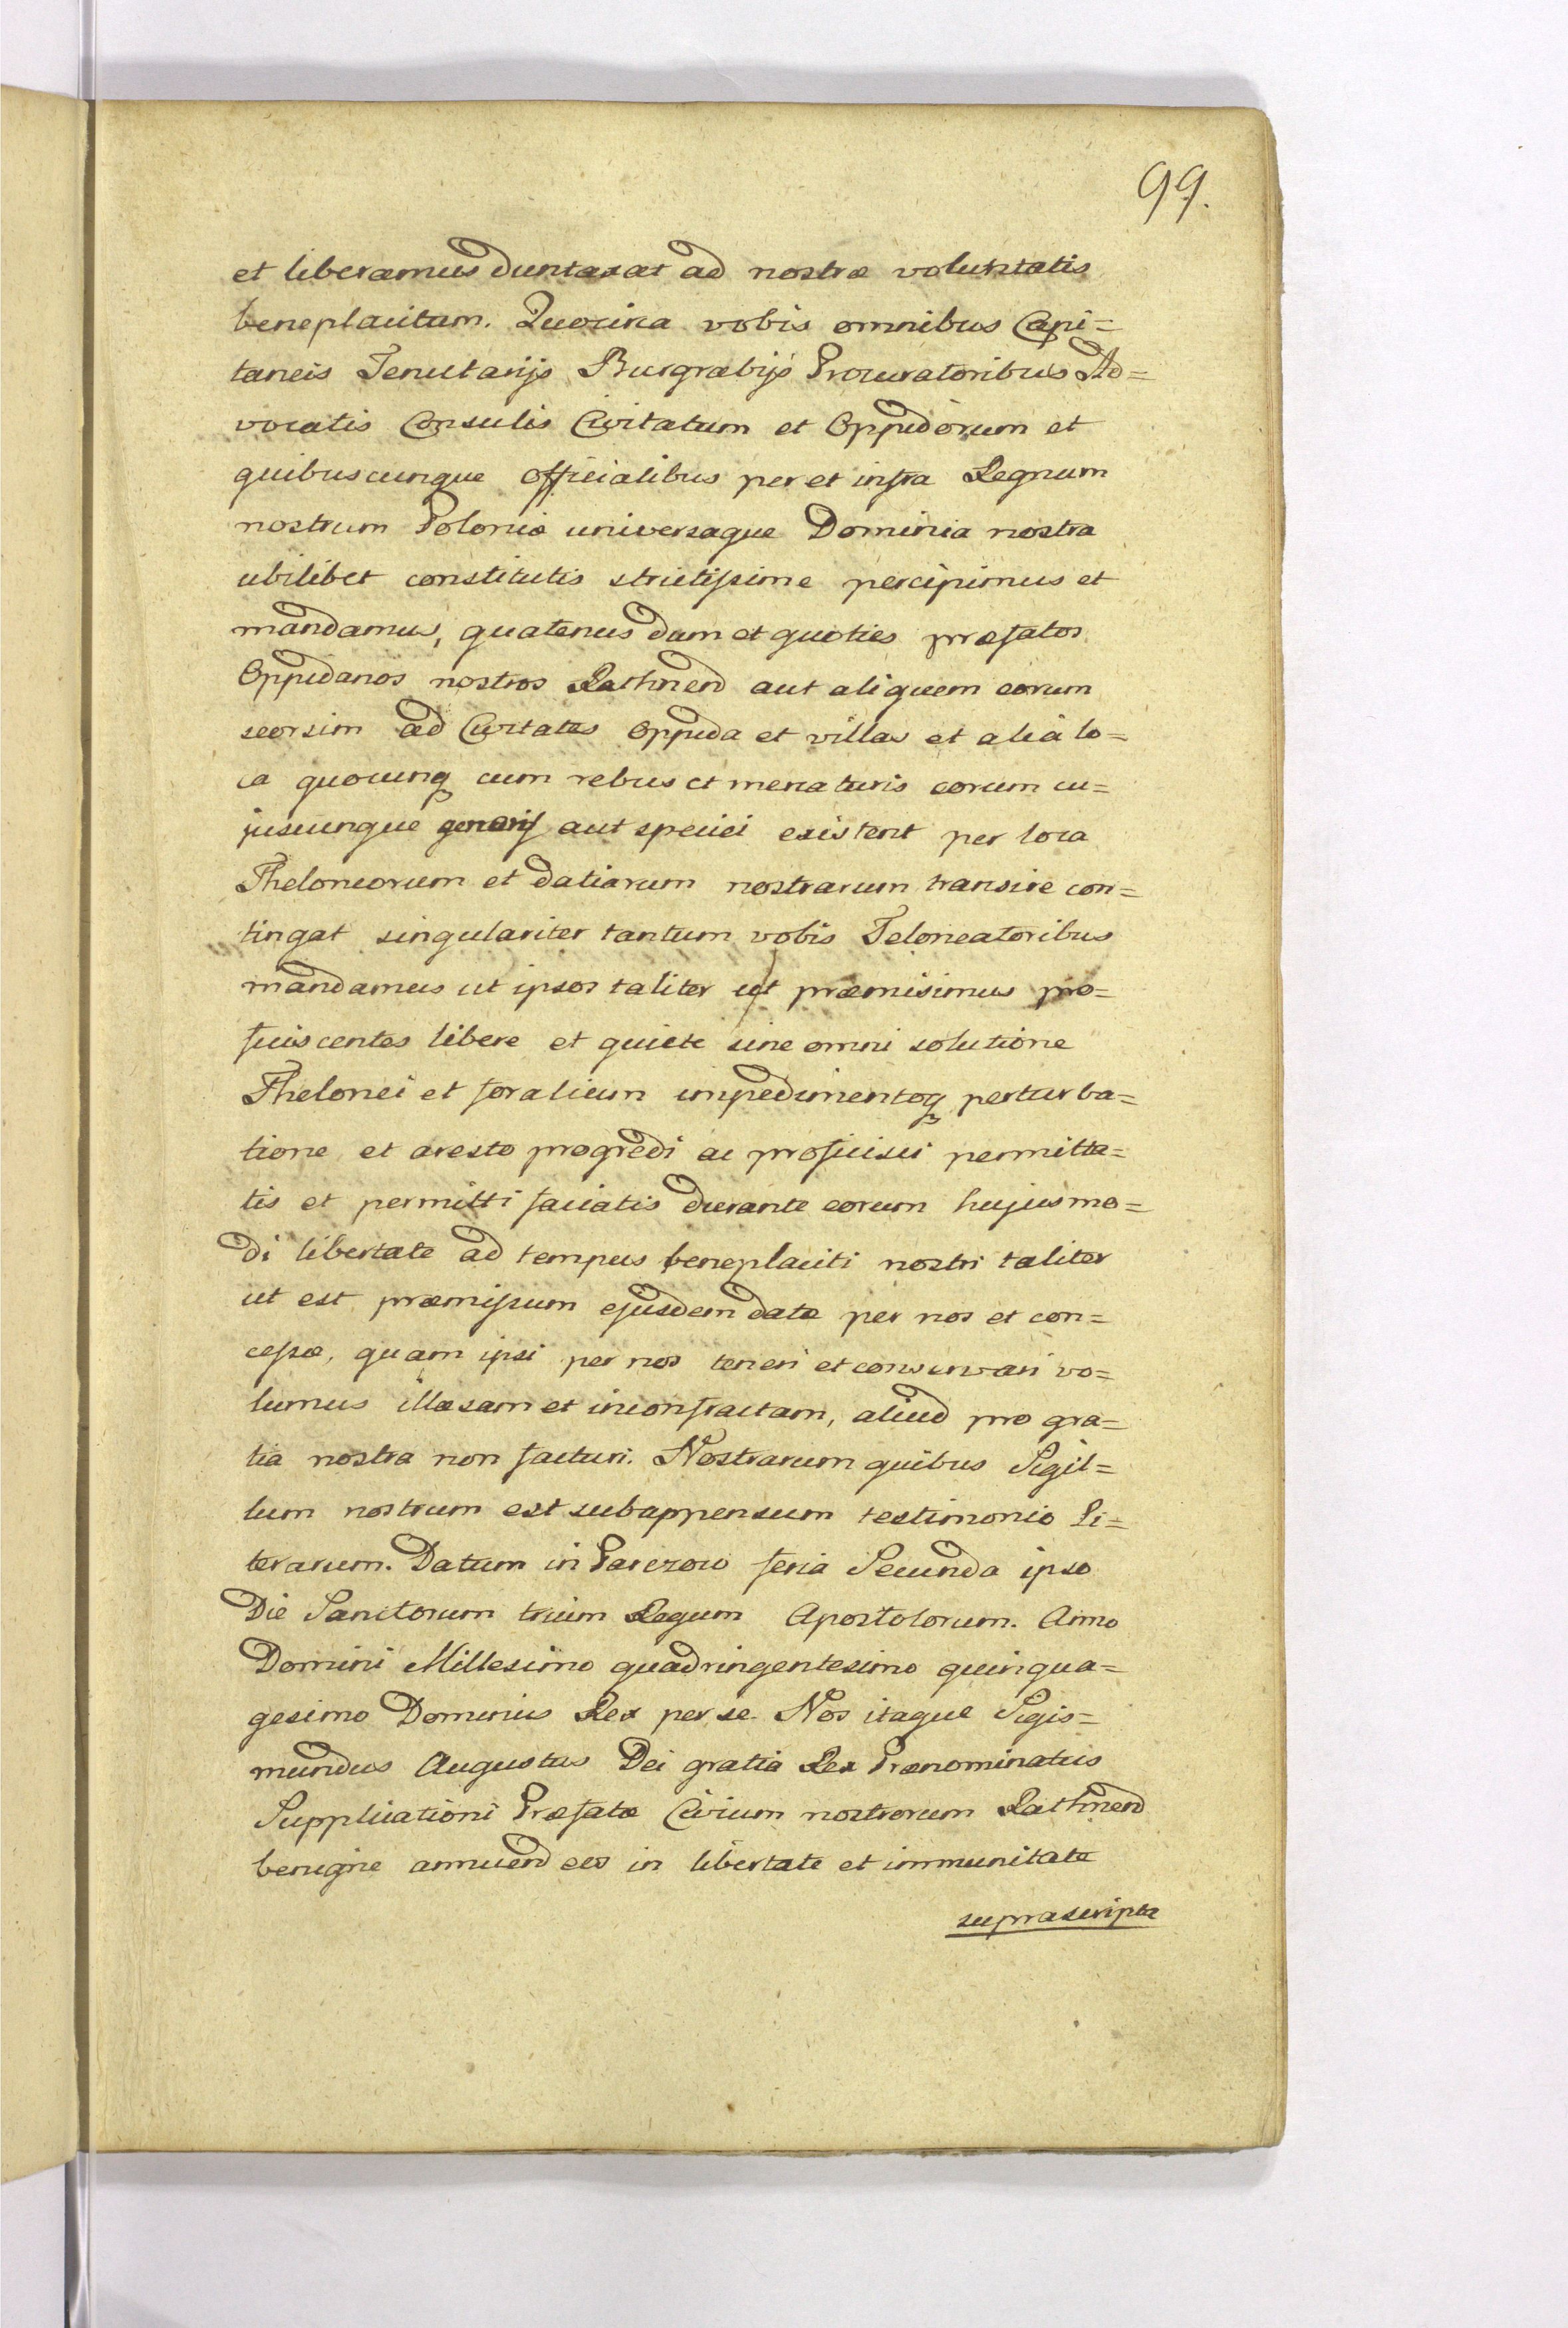 99.
et liberamus duntaxat ad nostræ voluntatis
beneplacitum. Quocirca vobis omnibus Capi=
taneis Tenutarijs Burgrabijs Procuratoribus Ad=
vocatis Consulis Civitatum et Oppidorum et
quibuscunque officialibus per et infra Regnum
nostrum Poloniæ universaque Dominia nostra
ubilibet constitutis strictissime percipimus et
mandamus, quatenus dum et quoties præfatos
Oppidanos nostros Rathnend aut aliquem eorum
seorsim ad Civitates Oppida et villas et alia lo=
ca quocunq cum rebus et mercaturis eorum cu=
juscunque generis aut speciei existent per loca
Theloneorum et datiarum nostrarum transire con=
tingat singulariter tantum vobis Teloneatoribus
mandamus ut ipsos taliter ut præmisimus pro=
ficiscentes libere et quiete sine omni solutione
Thelonei et foralium impedimentoq perturba=
tione et aresto progredi ac proficisci permitta=
tis et permitti faciatis durante eorum hujusmo=
di libertate ad tempus beneplaciti nostri taliter
ut est præmissum ejusdem datæ per nos et con=
cessæ, quam ipsi per nos teneri et conservari vo=
lumus illæsam et inconfractam, aliud pro gra=
tia nostra non facturi. Nostrarum quibus Sigil=
lum nostrum est subappensum testimonio Li=
terarum. Datum in Parczow feria Secunda ipso
Die Sanctorum trium Regum Apostolorum. Anno
Domini Millesimo quadringentesimo quinqua=
gesimo Dominus Rex per se. Nos itaque Sigis=
mundus Augustus Dei gratia Rex Prænominatus
Supplicationi Præfatæ Civium nostrorum Rathnend
benigne annuend eos in libertate et immunitate
suprascripta